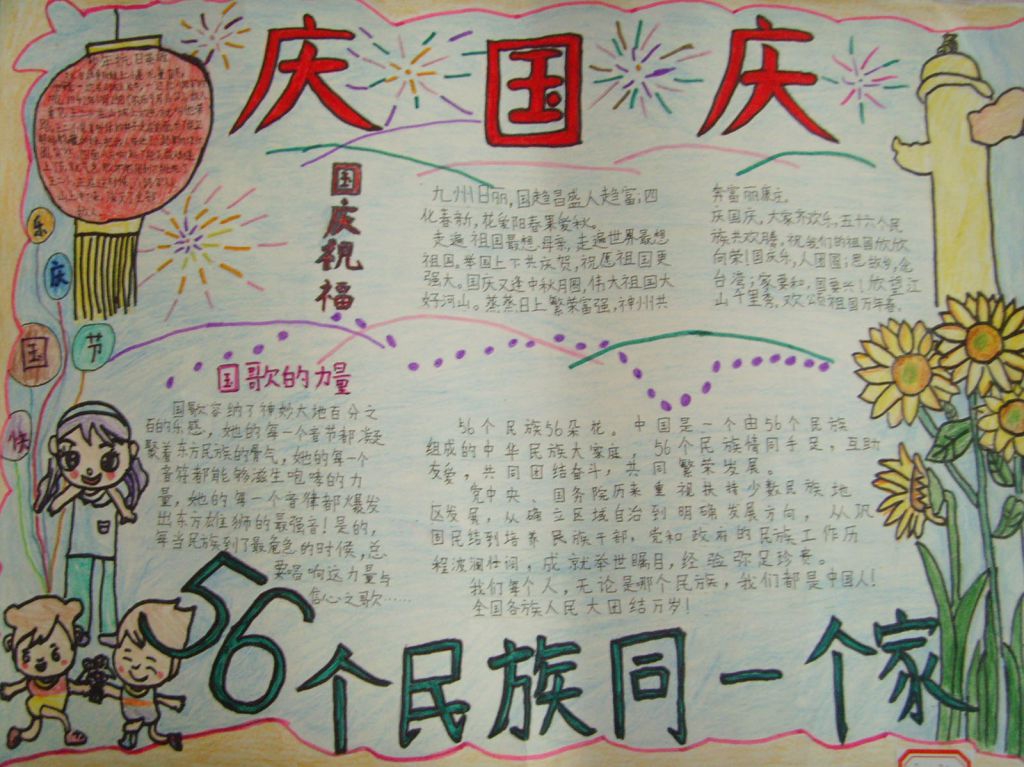 庆国庆
国庆祝福
九州日丽,国趋昌盛人趋富;四
化春新,花爱阳春果爱秋。
走遍祖国最想母亲,走遍世界最想
祖国。举国上下共庆贺,祝愿祖国更
强大。国庆又逢中秋月圆,伟大祖国大
好河山。蒸蒸日上繁荣富强,神州共
奔富丽康庄。
庆国庆,大家齐欢乐,五十六个民
族共欢腾,祝我们的祖国欣欣
向荣!国庆乐,人团圆;思故乡,念
台湾;家要和,国要兴!欣望江
山千里秀,欢颂祖国万年春。
乐
庆
国
节
快
国歌的力量
国歌容纳了神妙大地百分之
百的乐感,她的每一个音节都凝
聚着东方民族的勇气,她的每一个
音符都能够滋生咆哮的力
量,她的每一个音律都爆发
出东方雄狮的最强音!是的,
每当民族到了最危急的时候,总
要唱响这力量与
信心之歌……
56个民族56朵花。中国是一个由56个民族
组成的中华民族大家庭,56个民族情同手足,互助
友爱,共同团结奋斗,共同繁荣发展。
党中央、国务院历来重视扶持少数民族地
区发展,从确立区域自治到明确发展方向,从巩
固民结到培养民族干部,党和政府的民族工作历
程波澜壮阔,成就举世瞩目,经验弥足珍贵。
我们每个人,无论是哪个民族,我们都是中国人!
全国各族人民大团结万岁!
56个民族同一个家